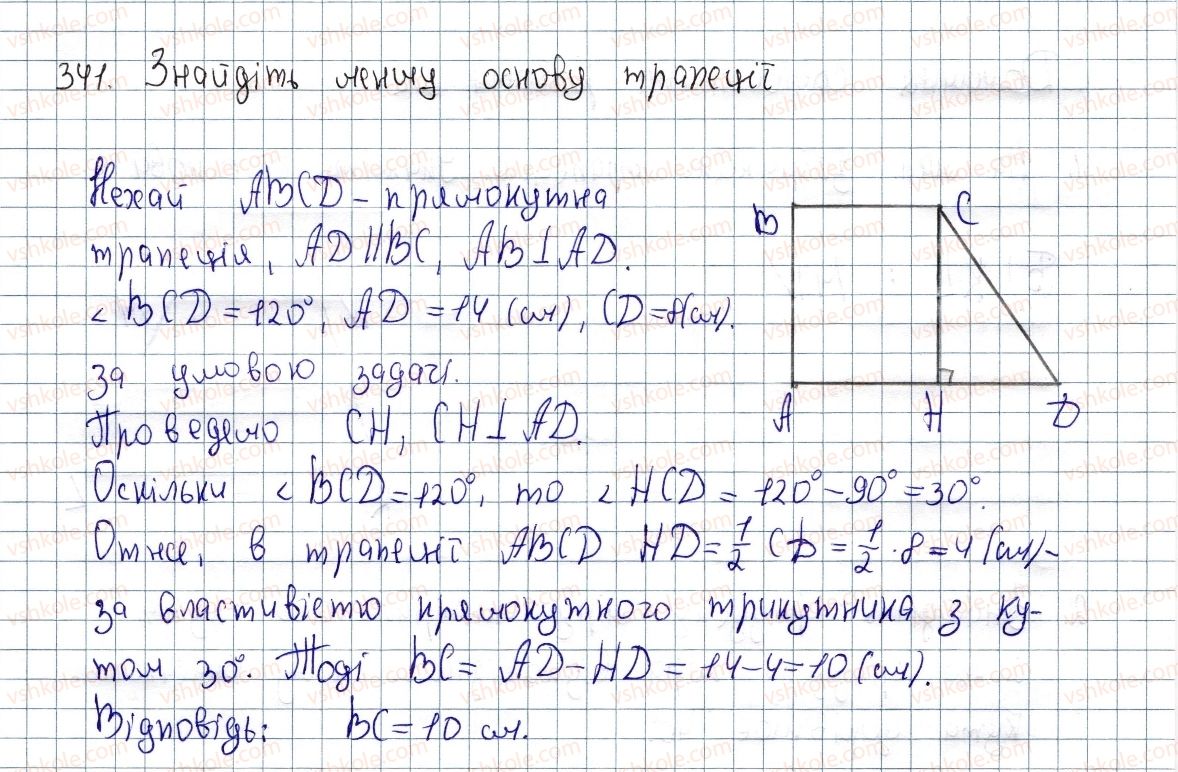 341. Знайдіть меншу основу трапеції
Нехай ABCD – прямокутна
трапеція, AD||BC, AB⊥AD.
< BCD = 120°, AD = 14 (см), CD = 8(см).
за умовою задачі.
Проведемо CH, CH⊥AD.
Оскільки < BCD = 120°, то < HCD = 120° – 90° = 30°.
Отже, в трапеції ABCD HD = 1/2 CD = 1/2 · 8 = 4 (см) –
за властивістю прямокутного трикутника з ку-
том 30°. Тоді BC = AD – HD = 14 – 4 = 10 (см).
Відповідь: BC = 10 см.
B C
A H D
vshkole.com